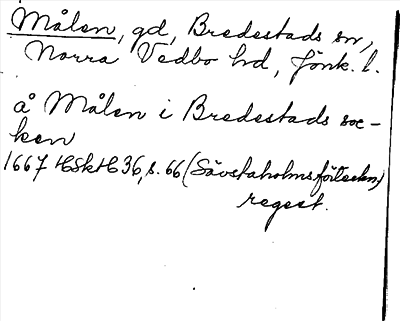 Målen, gd, Bredestads sn,
Norra Vedbo hd, Jönk. l.
å Målen i Bredestads soc-
ken
1667 HSkH 36, s. 66 (Sävstaholmsförteckn)
regest.